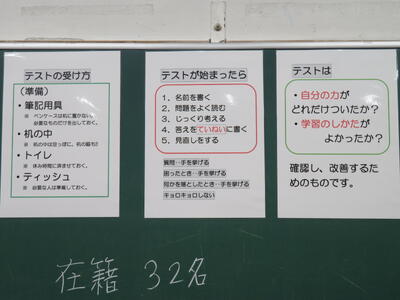 テストの受け方
(準備)
・筆記用具
※ ペンケースは机に置かない。
必要なものだけを出しておく。
・机の中
※ 机の中は空っぽに。机の脇も!!
・トイレ
※ 休み時間に済ませておく。
・ティッシュ
※ 必要な人は準備しておく。
テストが始まったら
1.名前を書く
2.問題をよく読む
3.じっくり考える
4.答えをていねいに書く
5.見直しをする
質問・・手を挙げる
困ったとき・・手を挙げる
何かを落としたとき・・手を挙げる
キョロキョロしない
テストは
・自分の力が
どれだけついたか?
・学習のしかたが
よかったか?
確認し、改善するた
めのものです。
在籍 32名